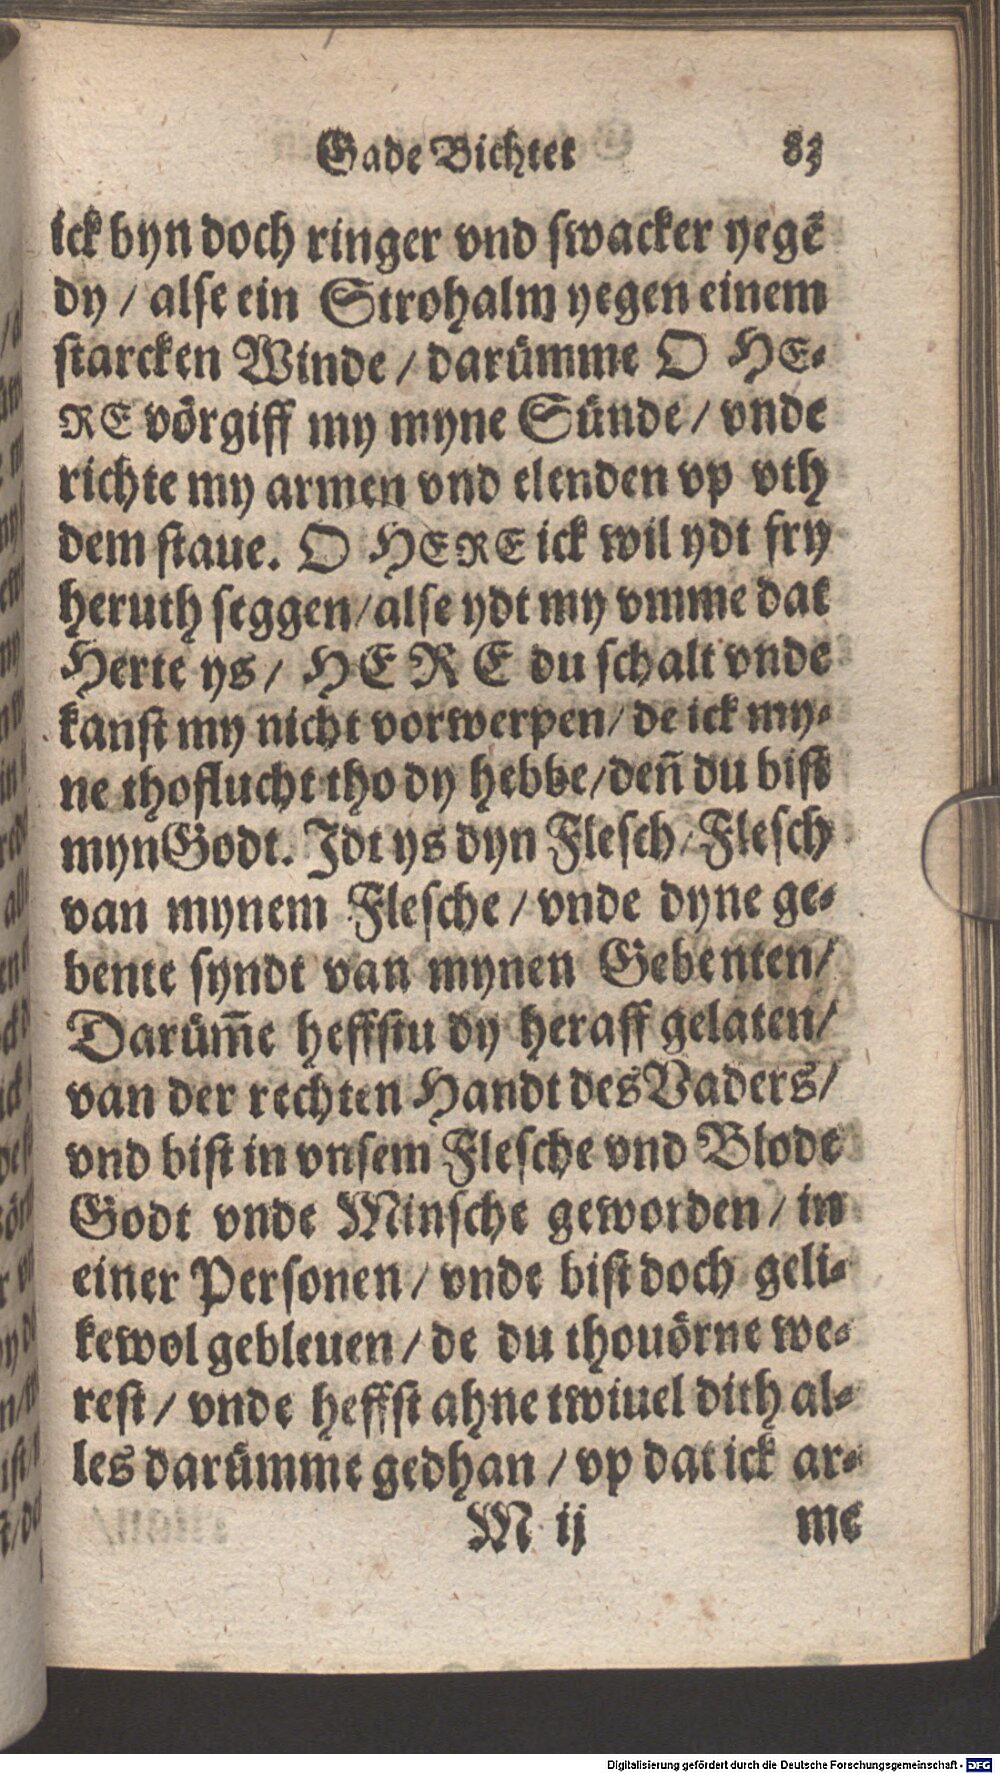 Gade Bichtet 83
ick byn doch ringer vnd swacker yegē
dy / alse ein Strohalm yegen einem
starcken Winde / darümme O HE-
RE vörgiff my myne Sünde / vnde
richte my armen vnd elenden vp vth
dem staue. O HERE ick wil ydt fry
heruth seggen / alse ydt my vmme dat
Herte ys / HERE du schalt vnde
kanst my nicht vorwerpen / de ick my-
ne thoflucht tho dy hebbe / deñ du bist
myn Godt. Idt ys dyn Flesch / Flesch
van mynem Flesche / vnde dyne ge-
bente syndt van mynen Gebenten /
Darüm̄e heffstu dy heraff gelaten /
van der rechten Handt des Vaders /
vnd bist in vnsem Flesche vnd Blode
Godt vnde Minsche geworden / in
einer Personen / vnde bist doch geli-
kewol gebleuen / de du thouörne we-
rest / vnde heffst ahne twiuel dith al-
les darümme gedhan / vp dat ick ar-
M ij me
Digitalisierung gefördert durch die Deutsche Forschungsgemeinschaft - DFG